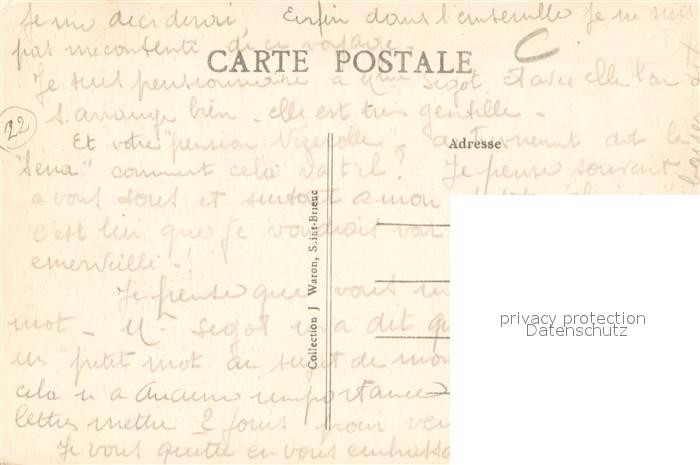 Je me déciderai, Enfin dans l'ensemble je ne suis
pas mécontente de ce voyage.
CARTE POSTALE
Je suis pensionnaire à Mme Segot et avec elle l'on
s'arrange bien - elle est très gentille.
22
Et votre "pension autrement dit le
Adresse
"Sena" comment cela va t'il? Je pense souvent
à vous tous et surtout à mon
c'est lui que je voudrais voir
émerveillé.
Collection J Waron, Saint-Brieuc
Je pense que vous
mot - Mr Segot m'a dit
un petit mot au sujet de mon
cela n'a aucune importance
lettres mettre 2 jours pour
Je vous quitte en vous embrassant
privacy protection
Datenschutz